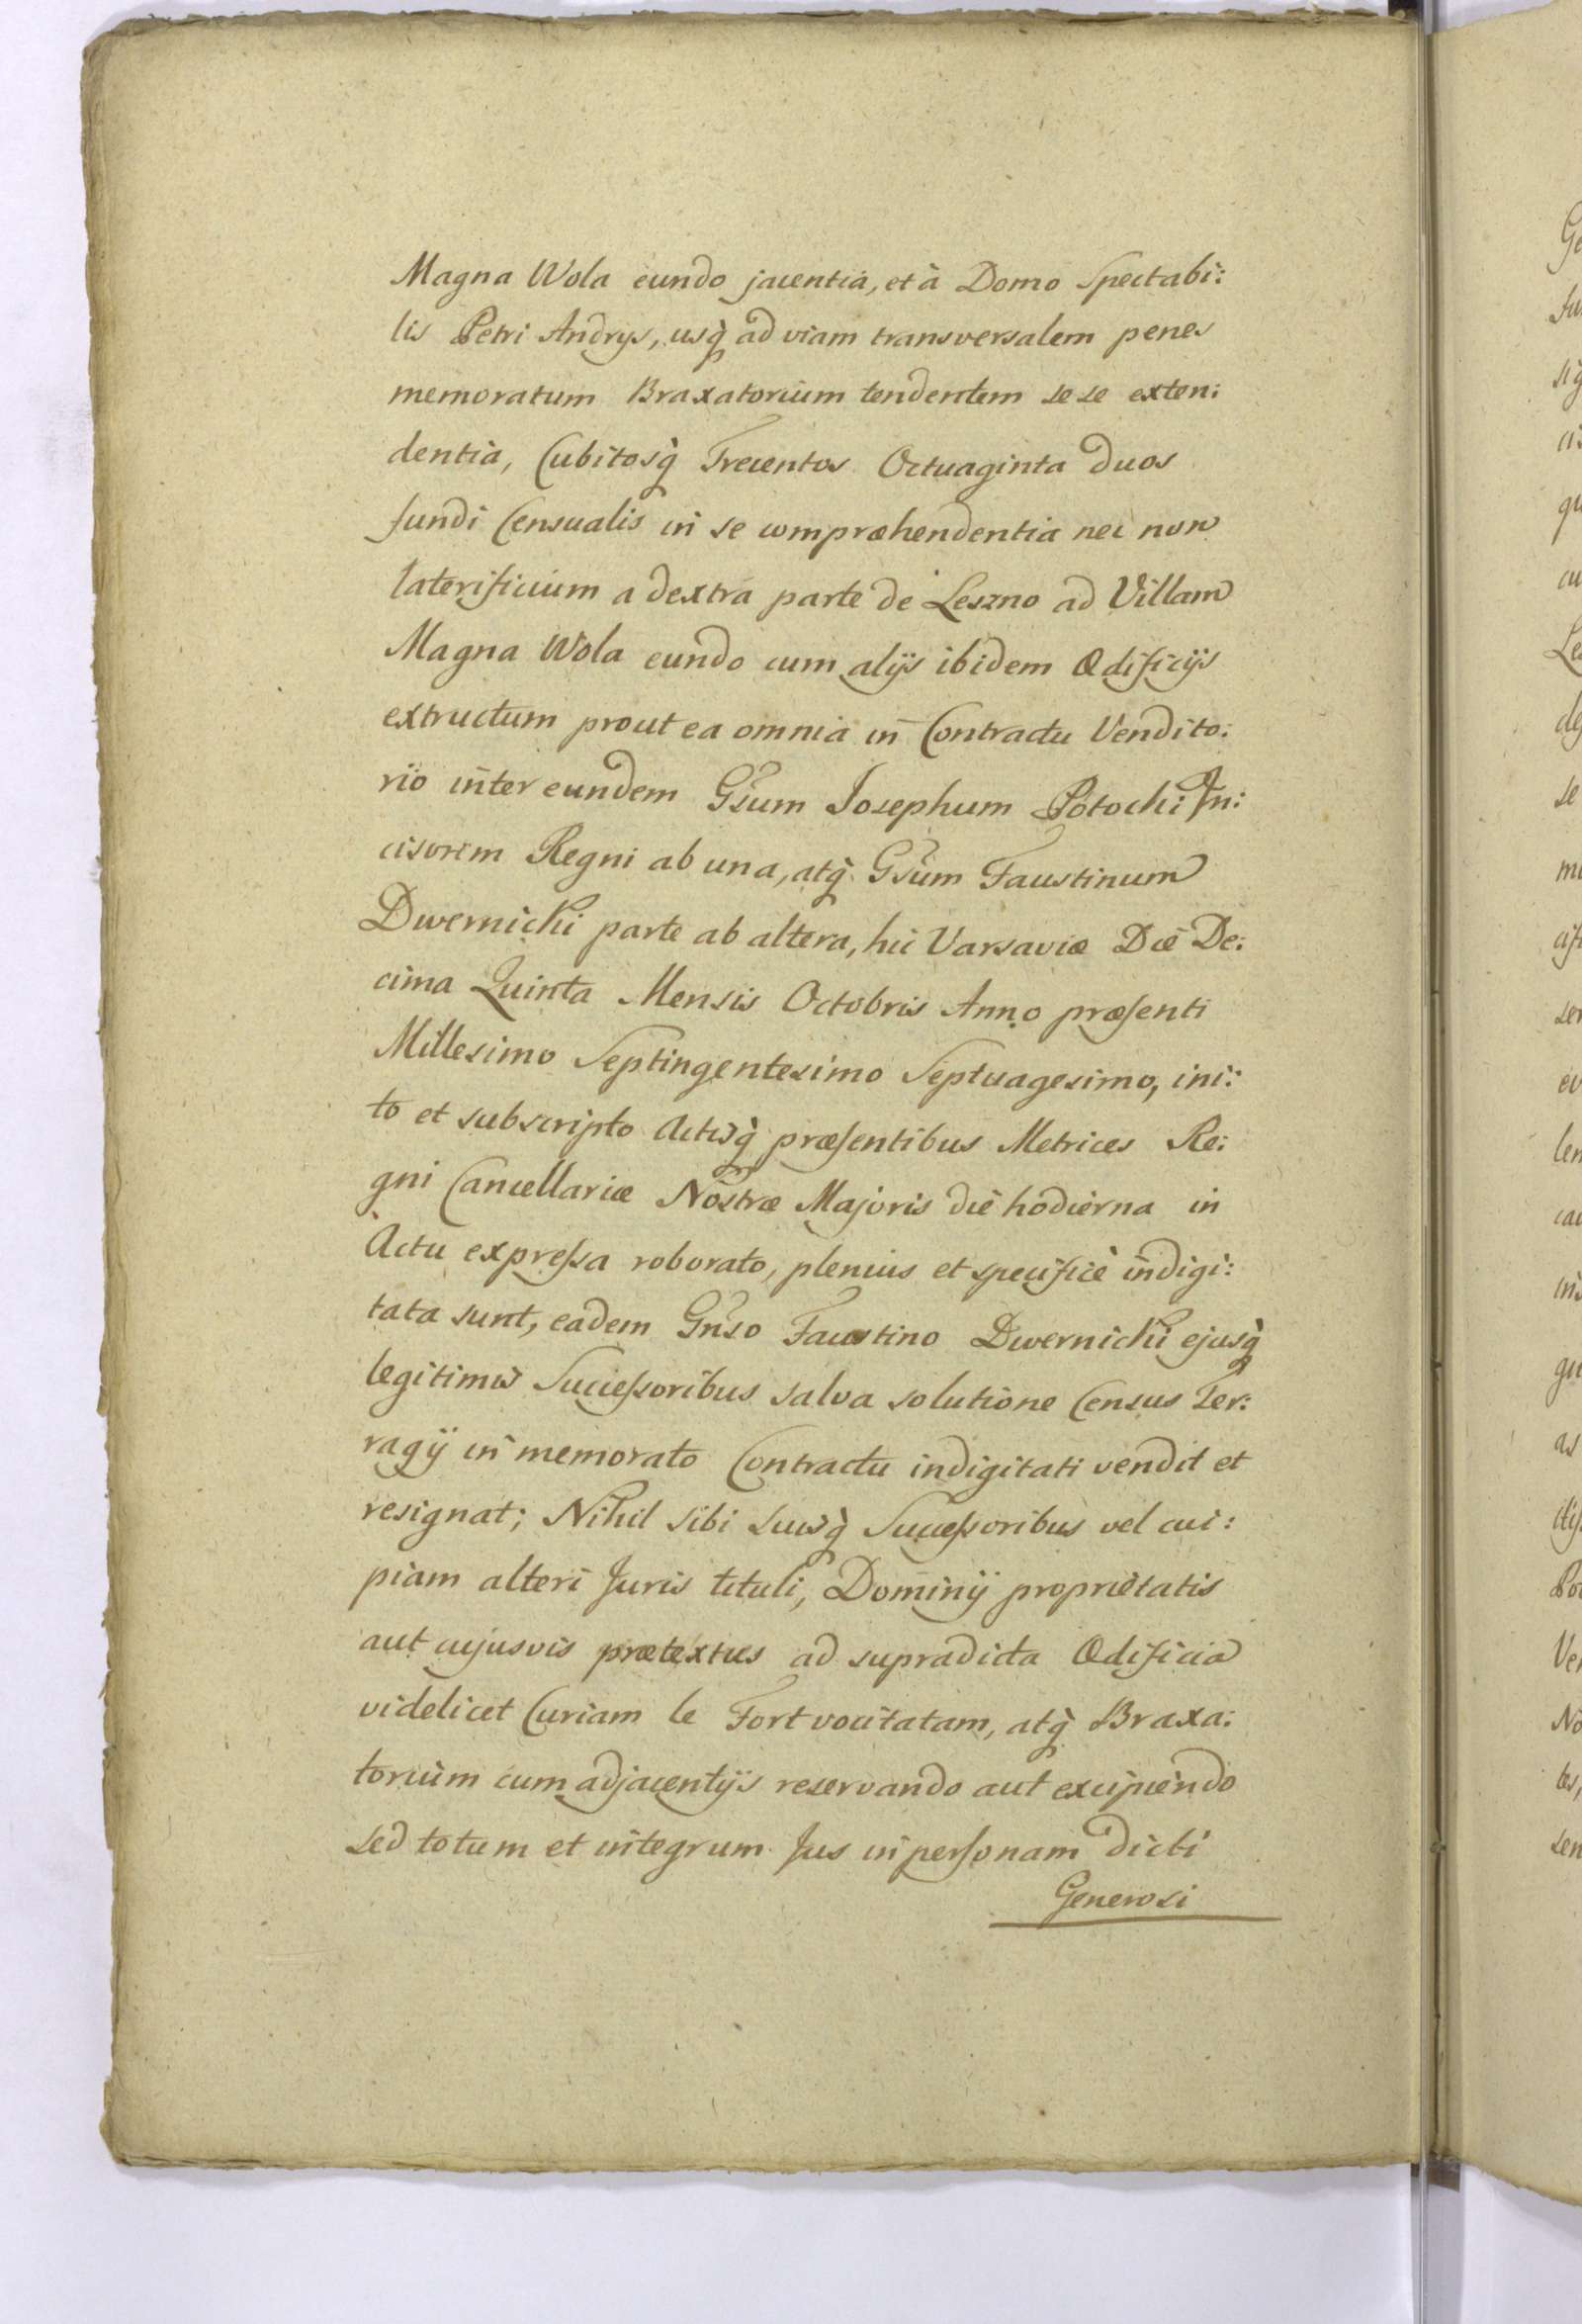 Magna Wola eundo jacentia, et à Domo Spectabi:
lis Petri Andrys, usq̀ ad viam transversalem penes
memoratum Braxatorium tendentem sese exten:
dentia, Cubitosq̀ Trecentos Octuaginta duos
fundi Censualis in se compræhendentia nec non
laterificium a dextra parte de Leszno ad Villam
Magna Wola eundo cum alijs ibidem Ædificijs
extructum prout ea omnia in Contractu Vendito:
rio inter eundem Gsum Josephum Potocki In:
cisorem Regni ab una, atq̀ Gsum Faustinum
Dwernicki parte ab altera, hic Varsaviæ Die De:
cima Quinta Mensis Octobris Anno præsenti
Millesimo Septingentesimo Septuagesimo, ini:
to et subscripto Actisq̀ præsentibus Metrices Re:
gni Cancellariæ Nostræ Majoris die hodierna in
Actu expressa roborato, plenius et specificè indigi:
tata sunt, eadem Gnso Faustino Dwernicki ejusq̀
legitimis Successoribus salva solutione Census Ter:
ragij in memorato Contractu indigitati vendit et
resignat; Nihil sibi suisq̀ Successoribus vel cui:
piam alteri Juris tituli, Dominij proprietatis
aut cujusvis prætextus ad supradicta Ædificia
videlicet Curiam le Fort vocitatam, atq̀ Braxa:
torium cum adjacentijs reservando aut excipiendo
sed totum et integrum Jus in personam dicti
Generosi